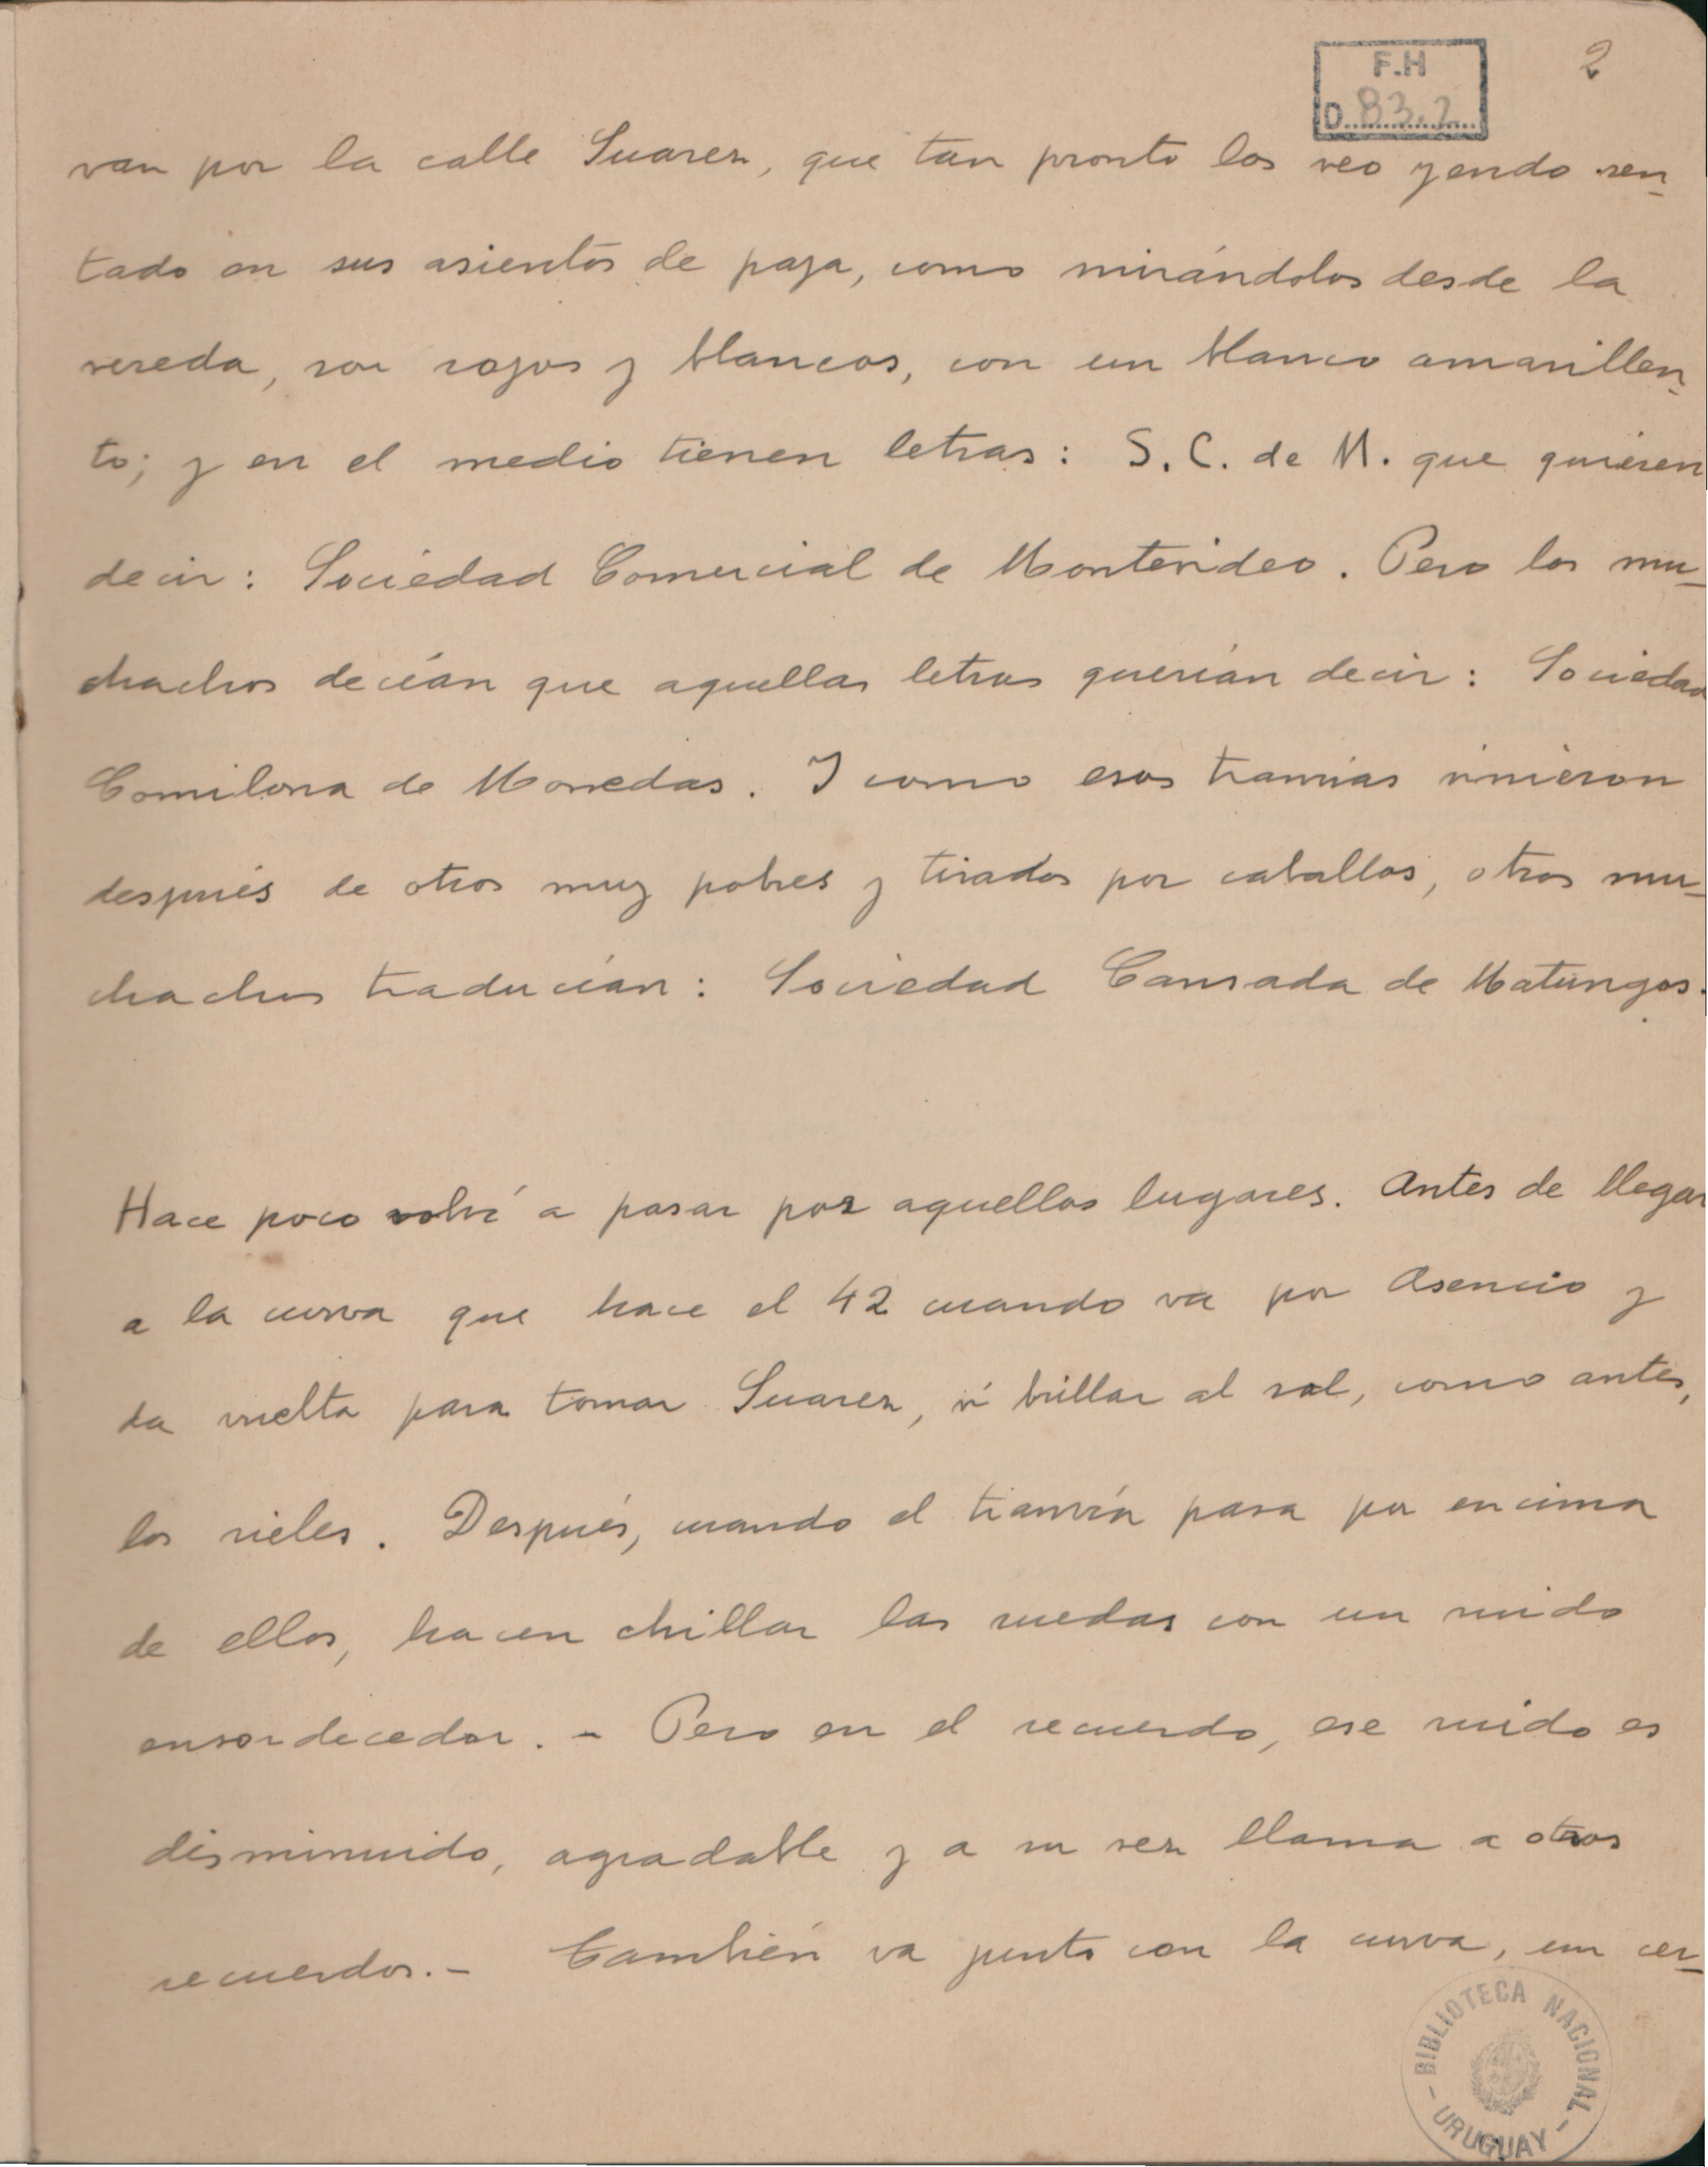 F.H
D. 83.2
2
van por la calle Suarez, que tan pronto los veo yendo sen-
tado en sus asientos de paja, como mirándolos desde la
vereda, son rojos y blancos, con un blanco amarillen-
to; y en el medio tienen letras: S. C. de M. que quieren
decir: Sociedad Comercial de Montevideo. Pero los mu-
chachos decían que aquellas letras querían decir: Sociedad
Comilona de Monedas. Y como esos tranvías vinieron
después de otros muy pobres y tirados por caballos, otros mu-
chachos traducían: Sociedad Cansada de Matungos.
Hace poco volví a pasar por aquellos lugares. Antes de llegar
a la curva que hace el 42 cuando va por Asencio y
da vuelta para tomar Suarez, vi brillar al sol, como antes,
los rieles. Después, cuando el tranvía pasa por encima
de ellos, hacen chillar las ruedas con un ruido
ensordecedor. - Pero en el recuerdo, ese ruido es
disminuido, agradable y a su vez llama a otros
recuerdos. - También va junto con la curva, un cer-
BIBLIOTECA NACIONAL - URUGUAY -